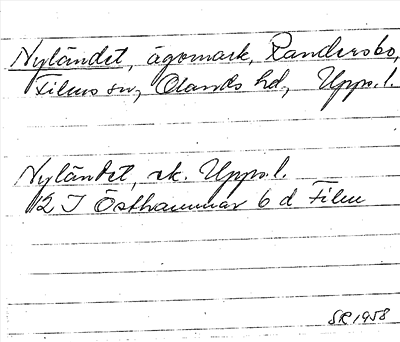 Nyländet, ägomark, Randersbo,
Films sn, Olands hd, Upps. l.
Nyländet, ek. Upps. l.
2 I Östhammar 6 d Film
SR 1958